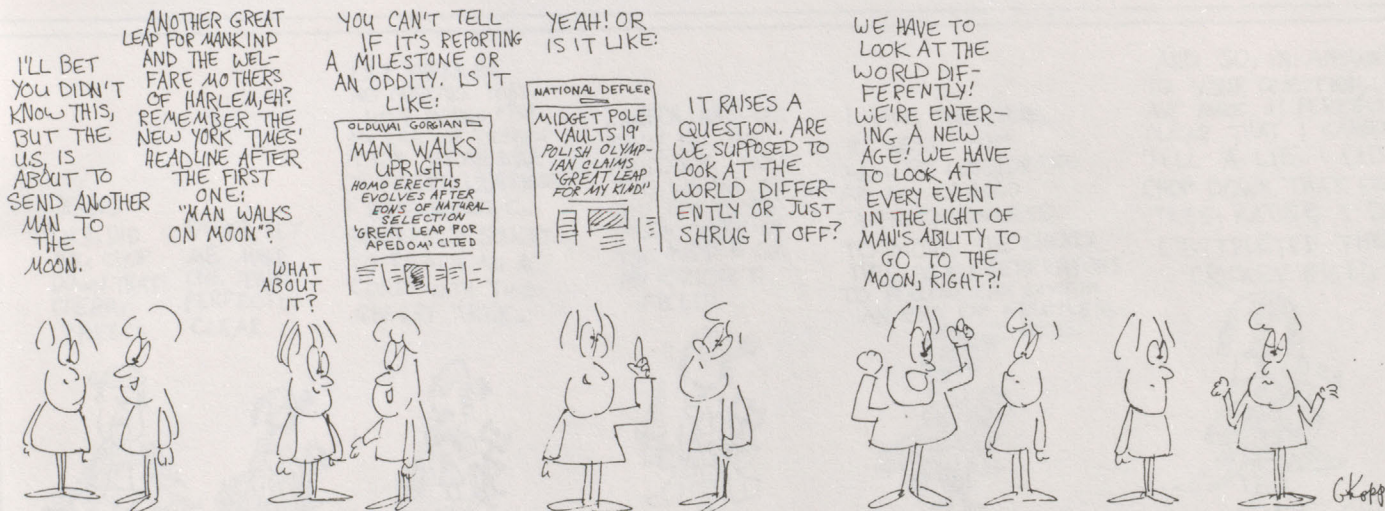 I'LL BET
YOU DIDN'T
KNOW THIS,
BUT THE
U.S. IS
ABOUT TO
SEND ANOTHER
MAN TO
THE
MOON.
ANOTHER GREAT
LEAP FOR MANKIND
AND THE WEL-
FARE MOTHERS
OF HARLEM, EH?
REMEMBER THE
NEW YORK TIMES'
HEADLINE AFTER
THE FIRST
ONE:
"MAN WALKS
ON MOON"?
WHAT
ABOUT
IT?
YOU CAN'T TELL
IF IT'S REPORTING
A MILESTONE OR
AN ODDITY. IS IT
LIKE:
OLDUVAI GORGIAN
MAN WALKS
UPRIGHT
HOMO ERECTUS
EVOLVES AFTER
EONS OF NATURAL
SELECTION
'GREAT LEAP FOR
APEDOM' CITED
YEAH! OR
IS IT LIKE:
NATIONAL DEFILER
MIDGET POLE
VAULTS 19'
POLISH OLYMP-
IAN CLAIMS
'GREAT LEAP
FOR MY KIND!'
IT RAISES A
QUESTION. ARE
WE SUPPOSED TO
LOOK AT THE
WORLD DIFFER-
ENTLY OR JUST
SHRUG IT OFF?
WE HAVE TO
LOOK AT THE
WORLD DIF-
FERENTLY!
WE'RE ENTER-
ING A NEW
AGE! WE HAVE
TO LOOK AT
EVERY EVENT
IN THE LIGHT OF
MAN'S ABILITY TO
GO TO THE
MOON, RIGHT?!
GKopp